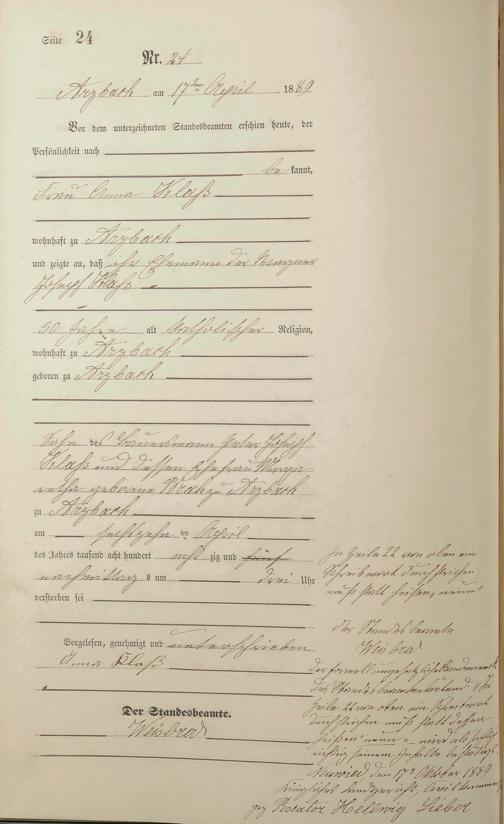 Seite 24
Nr. 24
Arzbach am 17ten April 1889
Vor dem unterzeichneten Standesbeamten erschien heute, der
Persönlichkeit nach
be kannt,
Frau Anna Klaß
wohnhaft zu Arzbach
und zeigte an, daß ihr Ehemann der
Joseph Klaß
50 Jahre alt katholischer Religion,
wohnhaft zu Arzbach
geboren zu Arzbach
Sohn des Bauersmann Peter Joseph
Klaß und dessen Ehefrau Marga-
retha geborene zu Arzbach
zu Arzbach
am sechszehn ten April
des Jahres tausend acht hundert acht zig und fünf
nachmittag s um drei Uhr
verstorben sei
Vorgelesen, genehmigt und unterschrieben
Anna Klaß
Der Standesbeamte.
Weisbrod
In Zeile 22 von oben ein
Schreibwort durchstrichen
muß statt heißen „neun“
Der Standesbeamte
Weisbrod
des Standesbeamten
Zeile 22 von oben ein Schreibwort
durchstrichen muß statt dessen
heißen „neun“ wird als
richtig seinem Inhalte
Neuwied den 17 Oktober 1889
Königliches Landgericht, Civilkammer
gez Pescator Hellwig Lieber